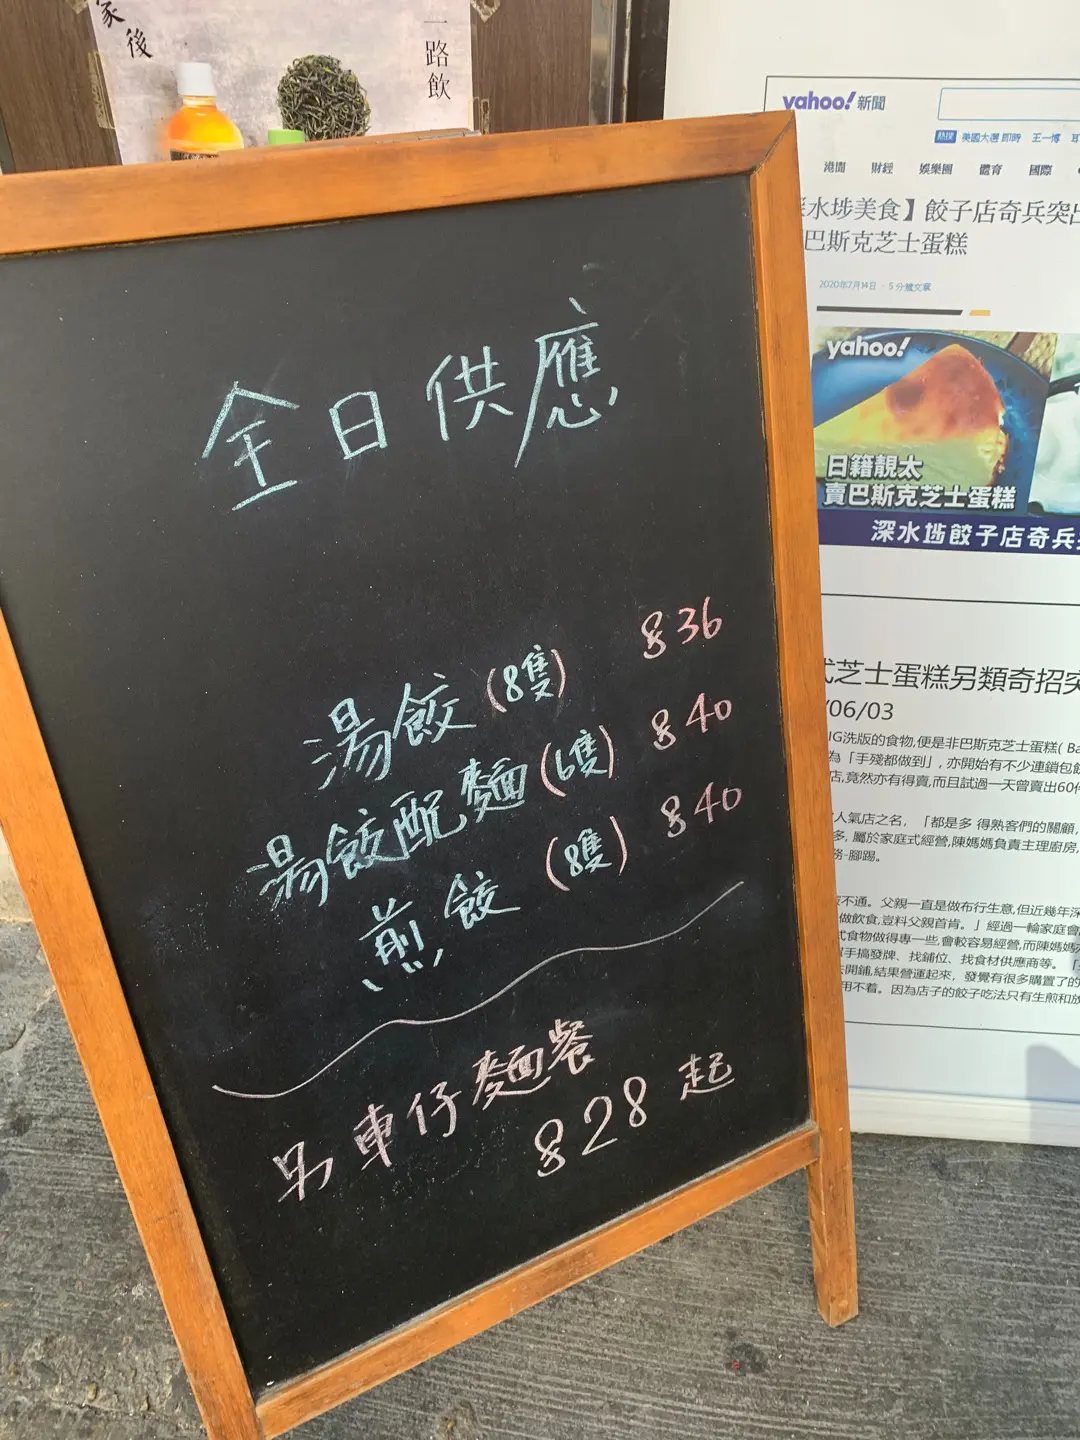 家後
一路飲
全日供應
湯餃(8隻) $36
湯餃配麵(6隻) $40
煎餃(8隻) $40
另車仔麵餐
$28起
yahoo!新聞
熱搜 美國大選 即時 王一博
港聞 財經 娛樂圈 體育 國際
水埗美食】餃子店奇兵突出
巴斯克芝士蛋糕
2020年7月14日 · 5 分鐘文章
yahoo!
日籍靚太
賣巴斯克芝士蛋糕
深水埗餃子店奇兵
式芝士蛋糕另類奇招突
/06/03
IG洗版的食物,便是非巴斯克芝士蛋糕( Ba
為「手殘都做到」, 亦開始有不少連鎖包餅
店,竟然亦有得賣,而且試過一天曾賣出60件
人氣店之名, 「都是多 得熟客們的關顧,
多, 屬於家庭式經營,陳媽媽負責主理廚房,
務-腳踢。
不通。父親一直是做布行生意,但近幾年深
做飲食,豈料父親首肯。」經過一輪家庭會
式食物做得專一些,會較容易經營,而陳媽媽
手搞發牌、找鋪位、找食材供應商等。
開鋪,結果營運起來，發覺有很多購置了的
用不着。因為店子的餃子吃法只有生煎和放